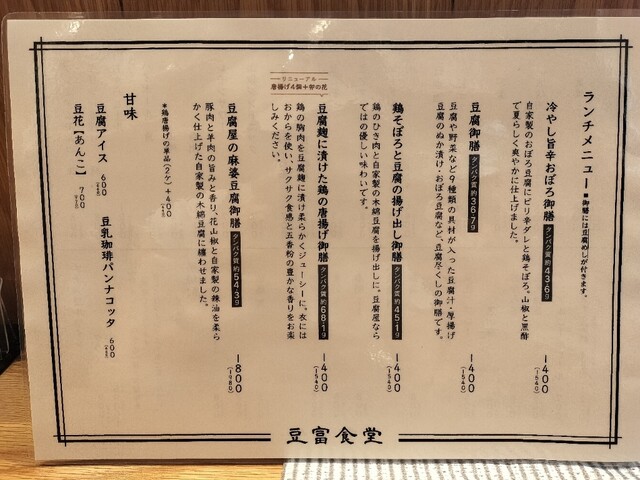 ランチメニュー ■御膳には豆腐めしが付きます。
冷やし旨辛おぼろ御膳 タンパク質約43.6g 1400(1540)
自家製のおぼろ豆腐にピリ辛ダレと鶏そぼろ。山椒と黒酢
で夏らしく爽やかに仕上げました。
豆腐御膳 タンパク質約36.7g 1400(1540)
豆腐や野菜など9種類の具材が入った豆腐汁・厚揚げ
豆腐のぬか漬け・おぼろ豆腐など、豆腐尽くしの御膳です。
鶏そぼろと豆腐の揚げ出し御膳 タンパク質約45.1g 1400(1540)
鶏のひき肉と自家製の木綿豆腐を揚げ出しに。豆腐屋なら
ではの優しい味わいです。
リニューアル
唐揚げ4個+卯の花
豆腐麹に漬けた鶏の唐揚げ御膳 タンパク質約68.1g 1400(1540)
鶏の胸肉を豆腐麹に漬け柔らかくジューシーに。衣には
おからを使い、サクサク食感と五香粉の豊かな香りをお楽
しみください。
豆腐屋の麻婆豆腐御膳 タンパク質約54.3g 1800(1980)
豚肉と羊肉の旨みと香り、花山椒と自家製の辣油を柔ら
かく仕上げた自家製の木綿豆腐に纏わせました。
*鶏唐揚げの単品(2ケ)+400
甘味
豆腐アイス 600
豆乳珈琲パンナコッタ 600
豆花【あんこ】 700
豆富食堂